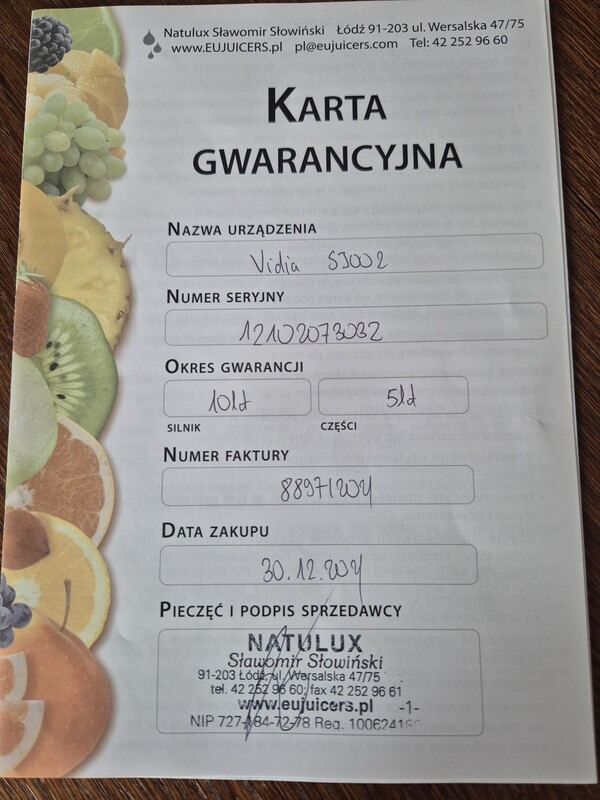 Natulux Sławomir Słowiński Łódź 91-203 ul. Wersalska 47/75
www.EUJUICERS.pl pl@eujuicers.com Tel: 42 252 96 60
KARTA
GWARANCYJNA
NAZWA URZĄDZENIA
Vidia SJ002
NUMER SERYJNY
12102073032
OKRES GWARANCJI
10 lat 5 lat
SILNIK CZĘŚCI
NUMER FAKTURY
DATA ZAKUPU
PIECZĘĆ I PODPIS SPRZEDAWCY
NATULUX
Sławomir Słowiński
91-203 Łódź, ul. Wersalska 47/75
tel. 42 252 96 60; fax 42 252 96 61
www.eujuicers.pl -1-
NIP 727-184-72-78 Reg.